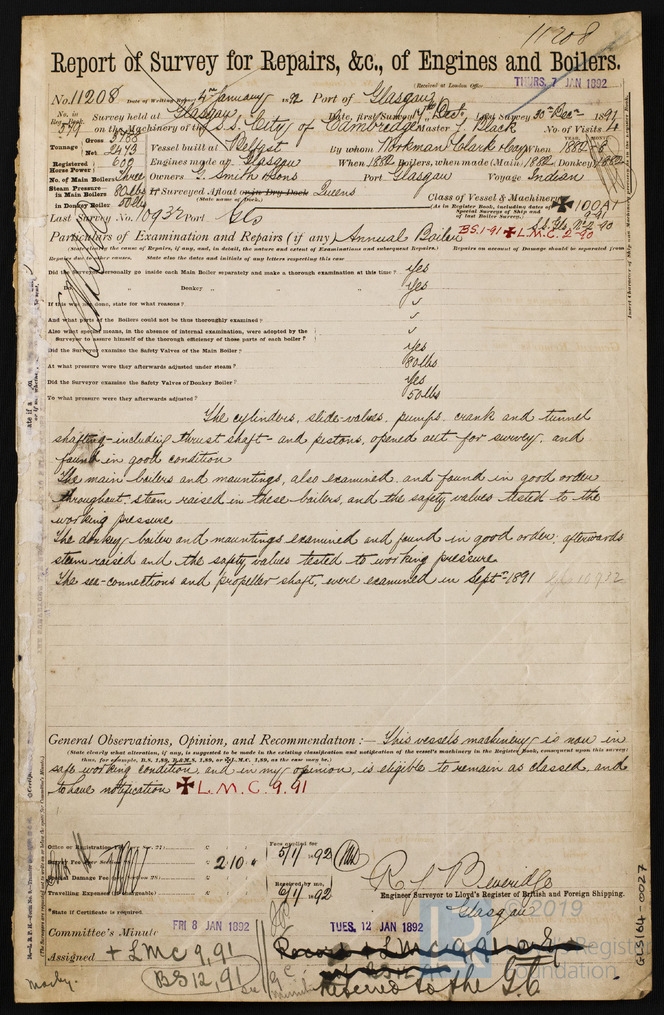 11208
Report of Survey for Repairs, &c., of Engines and Boilers.
(Received at London Office THURS. 7 JAN 1892
No. 11208 Date of Writing Report 4th January 1892 Port of Glasgow
No. in Reg. Book 579 Survey held at Glasgow Date, first Survey Decr Last Survey 30th Decr 1891
on the Machinery of the S.S. City of Cambridge Master J. Black No. of Visits 4
Tonnage Gross Net 2473 Vessel built at Belfast By whom Workman Clark & Co When 1882-8
Registered Horse Power 600 Engines made at Glasgow When 1882 Boilers, when made (Main) 1882 (Donkey) 1882
No. of Main Boilers Three Owners G. Smith & Sons Port Glasgow Voyage Indian
Steam Pressure in Main Boilers 80 lbs If Surveyed Afloat or in Dry Dock Queens
(State name of Dock.)
in Donkey Boiler 50 lbs
Class of Vessel & Machinery ✠ 100A1
(As in Register Book, including dates of Special Surveys of Ship and of last Boiler Survey.) 9-91
Last Survey No. 10932 Port Gls
BS.1-91 ✠ L.M.C. 2-90
Particulars of Examination and Repairs (if any) Annual Boiler
Repairs due to other causes. State also the dates and initials of any letters respecting this case
Did the Surveyor personally go inside each Main Boiler separately and make a thorough examination at this time? Yes
Do. „ Donkey „ „ „ Yes
If this was not done, state for what reasons? ✓
And what parts of the Boilers could not be thus thoroughly examined? ✓
Also what special means, in the absence of internal examination, were adopted by the Surveyor to assure himself of the thorough efficiency of those parts of each boiler? ✓
Did the Surveyor examine the Safety Valves of the Main Boiler? Yes
At what pressure were they afterwards adjusted under steam? 80 lbs
Did the Surveyor examine the Safety Valves of Donkey Boiler? Yes
To what pressure were they afterwards adjusted? 50 lbs
The cylinders, slide-valves, pumps, crank and tunnel
shafting - including thrust shaft - and pistons, opened out for survey, and
found in good condition
The main boilers and mountings, also examined, and found in good order
throughout, steam raised in these boilers, and the safety valves tested to the
working pressure
The donkey boiler and mountings examined and found in good order; afterwards
steam raised and the safety valves tested to working pressure.
The sea-connections and propeller shaft, were examined in Septr 1891 Gls 10932
General Observations, Opinion, and Recommendation:— This vessels machinery is now in
(State clearly what alteration, if any, is suggested to be made in the existing classification and notification of the vessel's machinery in the Register Book, consequent upon this survey;
thus, for example, B.S. 1,89, B.&M.S. 1,89, or ✠ L.M.C. 1,89, as the case may be.)
safe working condition, and in my opinion, is eligible to remain as classed, and
to have notification ✠ L.M.C. 9.91
Fees applied for
5/1/1892
£ 2.10
Received by me,
6/1/1892
Travelling Expenses (if chargeable)
R. J. Beveridge
Engineer Surveyor to Lloyd's Register of British and Foreign Shipping.
Glasgow
*State if Certificate is required.
Committee's Minute FRI 8 JAN 1892 TUES. 12 JAN 1892
Assigned + LMC 9,91
BS 12,91
Referred to the G.C
GLS164-0027
© 2019
Foundation